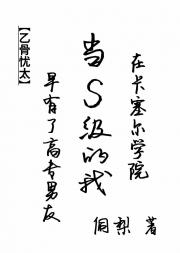 【乙骨忧太】
在卡塞尔学院
当S级的我
早有了高专男友
侗梨 著